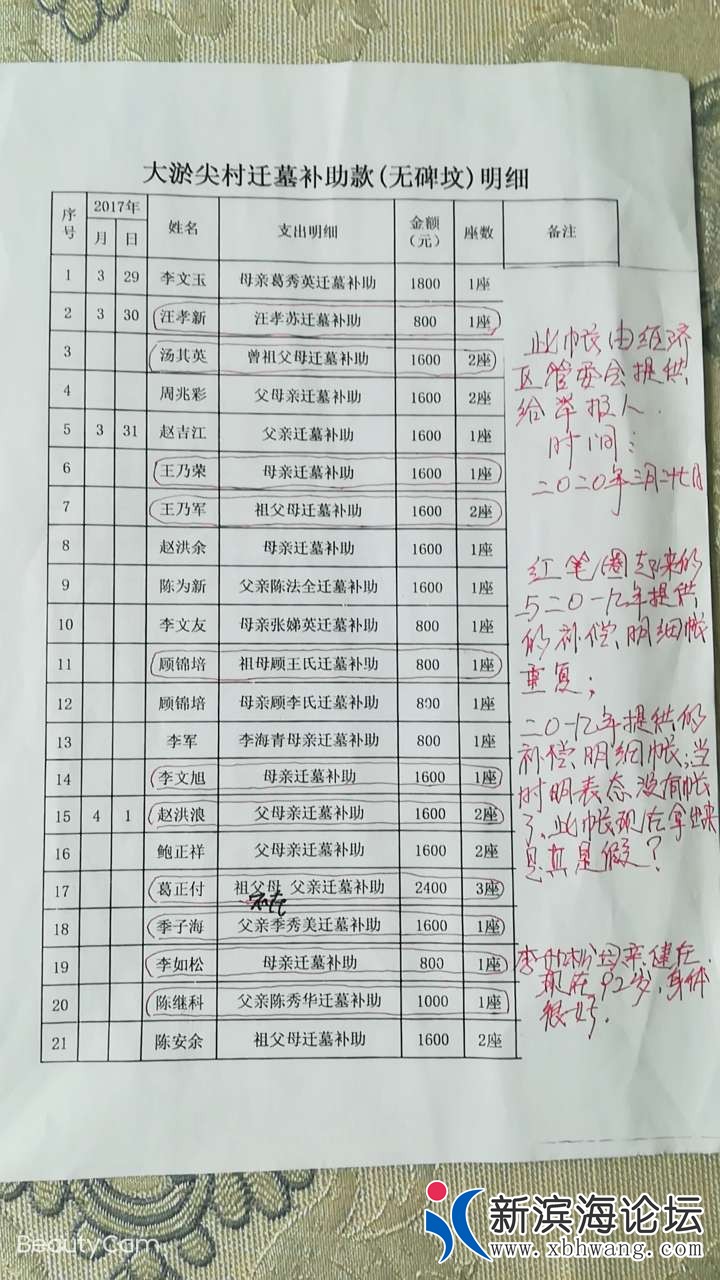 大淤尖村迁墓补助款(无碑坟)明细
序号 2017年 月 日 姓名 支出明细 金额(元) 座数 备注
1 3 29 李文玉 母亲葛秀英迁墓补助 1800 1座
2 3 30 汪孝新 汪孝苏迁墓补助 800 1座
3 汤其英 曾祖父母迁墓补助 1600 2座
4 周兆彩 父母亲迁墓补助 1600 2座
5 3 31 赵吉江 父亲迁墓补助 1600 1座
6 王乃荣 母亲迁墓补助 1600 1座
7 王乃军 祖父母迁墓补助 1600 2座
8 赵洪余 母亲迁墓补助 1600 1座
9 陈为新 父亲陈法全迁墓补助 1600 1座
10 李文友 母亲张娣英迁墓补助 800 1座
11 顾锦培 祖母顾王氏迁墓补助 800 1座
12 顾锦培 母亲顾李氏迁墓补助 800 1座
13 李军 李海青母亲迁墓补助 800 1座
14 李文旭 母亲迁墓补助 1600 1座
15 4 1 赵洪浪 父母亲迁墓补助 1600 2座
16 鲍正祥 父母亲迁墓补助 1600 2座
17 葛正付 祖父母 父亲迁墓补助 2400 3座
18 季子海 父亲季秀美迁墓补助 1600 1座
19 李如松 母亲迁墓补助 800 1座
20 陈继科 父亲陈秀华迁墓补助 1000 1座
21 陈安余 祖父母迁墓补助 1600 2座
此帐由经济
区管委会提供
给举报人.
时间:
二〇二〇年三月二十七日
红笔圈起来的
与二〇一八年提供
的补偿明细帐
重复;
二〇一八年提供的
补偿明细帐;当
时明表态没有帐
了、此帐现在拿出来
是真是假?
李如松母亲健在.
现在92岁.身体
很好.
BeautyCam
新滨海论坛
www.xbhwang.com